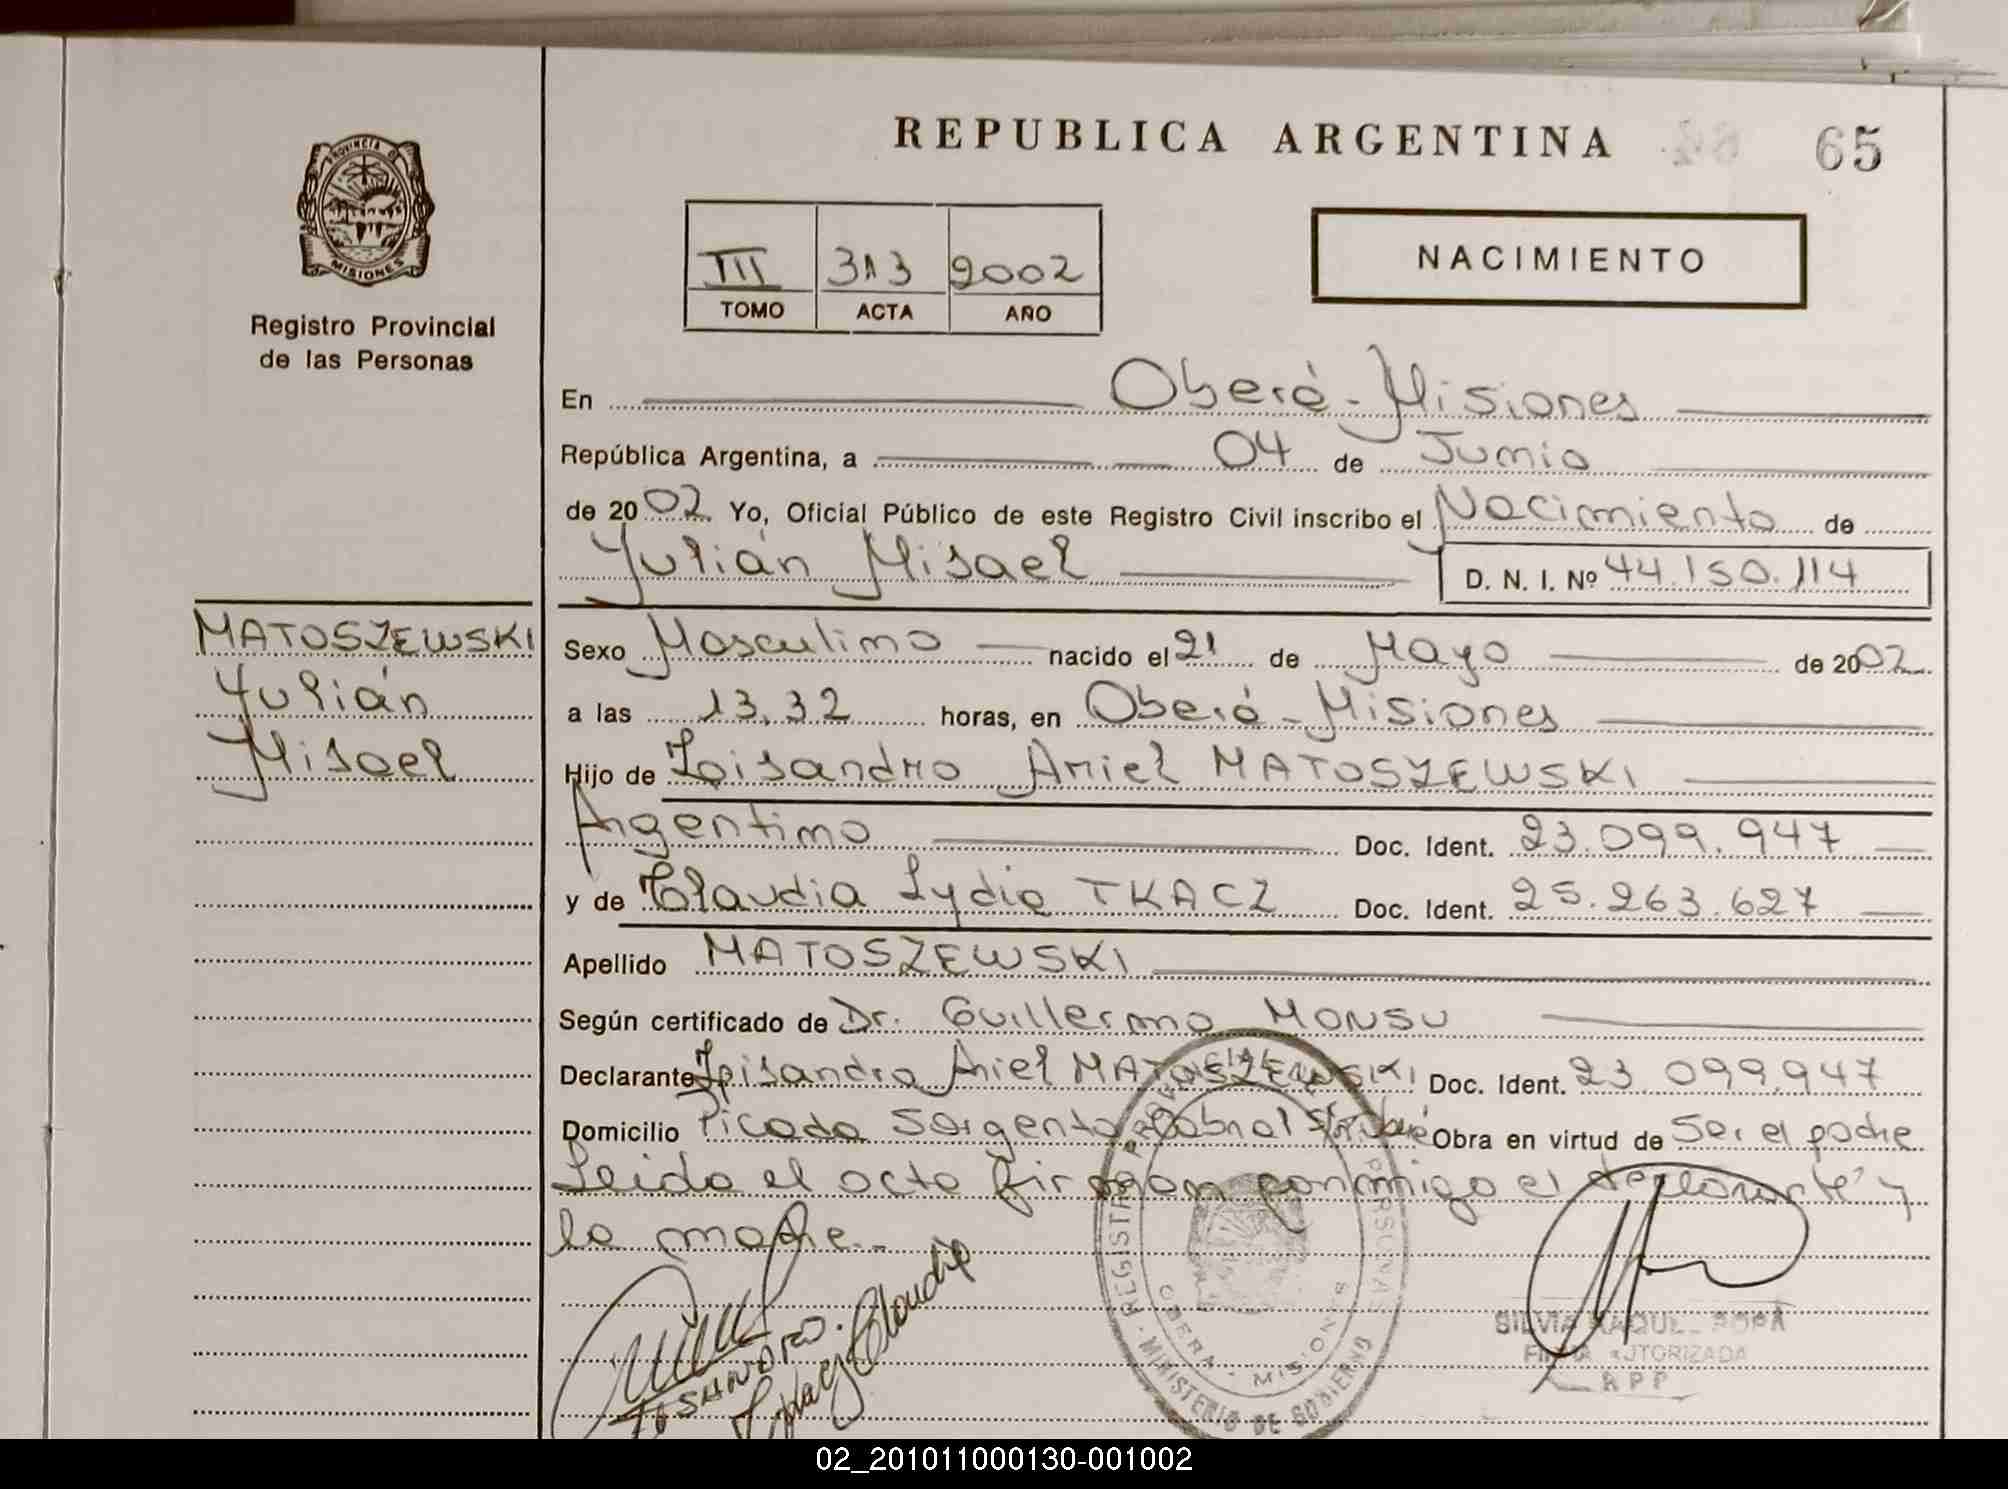 REPUBLICA ARGENTINA
65
PROVINCIA DE
MISIONES
Registro Provincial
de las Personas
III 313 2002
TOMO ACTA AÑO
NACIMIENTO
En Oberá - Misiones
República Argentina, a 04 de Junio
de 2002 Yo, Oficial Público de este Registro Civil inscribo el Nacimiento de
Yulián Misael
D. N. I. Nº 44.150.114
MATOSZEWSKI
Yulián
Misael
Sexo Masculino nacido el 21 de Mayo de 2002
a las 13,32 horas, en Oberá - Misiones
Hijo de Loisandro Ariel MATOSZEWSKI
Argentino Doc. Ident. 23.099.947
y de Claudia Lydia TKACZ Doc. Ident. 25.263.627
Apellido MATOSZEWSKI
Según certificado de Dr. Guillermo MONSU
Declarante Loisandro Ariel MATOSZEWSKI Doc. Ident. 23.099.947
Domicilio Picada Sargento Cabral Obra en virtud de Ser el padre
Leida el acta firman conmigo el declarante y
la madre.-
REGISTRO PROVINCIAL PERSONAS
OBERA - MISIONES
MINISTERIO DE GOBIERNO
Tkacz Claudia
SILVIA RAQUEL
FIRMA AUTORIZADA
RPP
02_201011000130-001002